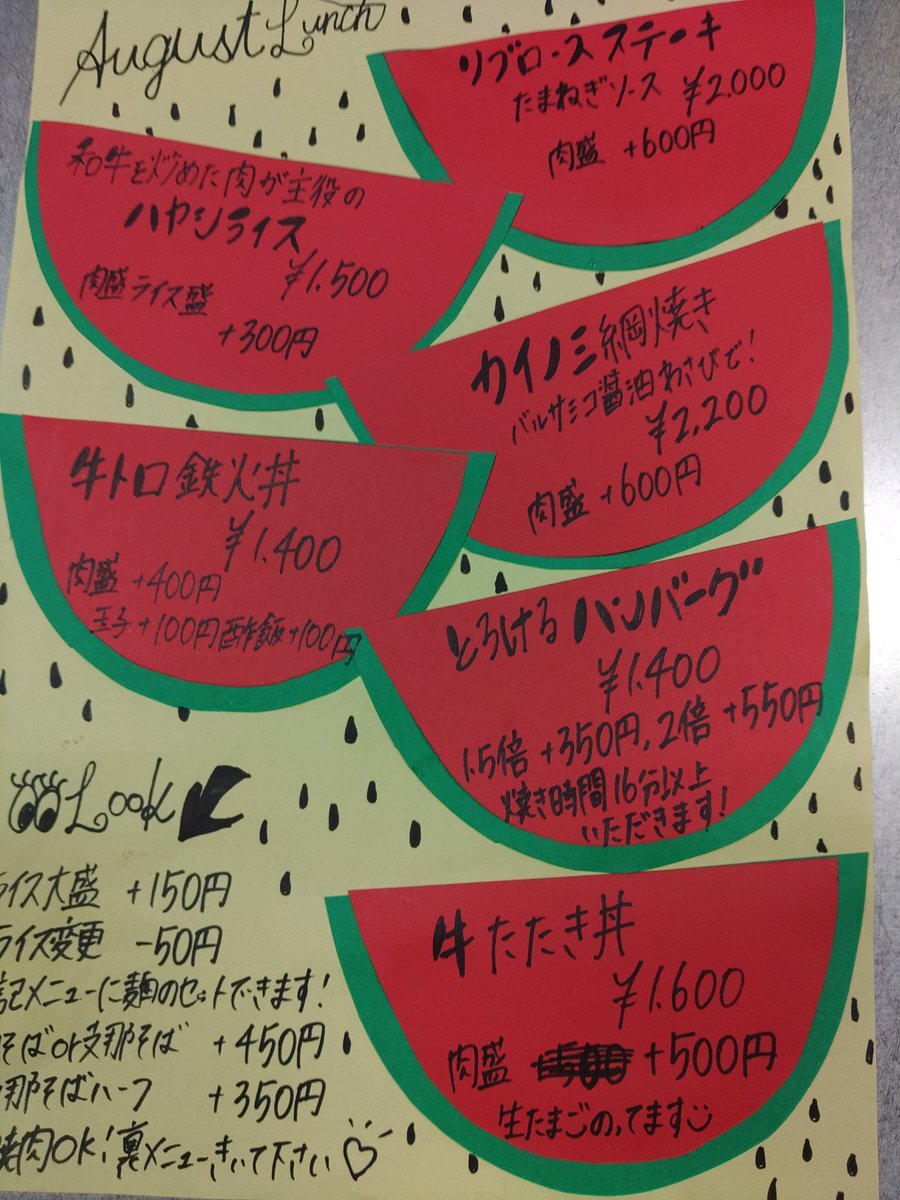 August Lunch
リブロースステーキ
たまねぎソース ¥2.000
肉盛 +600円
和牛を炒めた肉が主役の
ハヤシライス
¥1.500
肉盛ライス盛
+300円
カイノミ網焼き
バルサミコ醤油わさびで!
¥2,200
肉盛 +600円
牛トロ鉄火丼
¥1.400
肉盛 +400円
玉子+100円 酢飯+100円
とろける ハンバーグ
¥1.400
1.5倍 +350円, 2倍 +550円
焼き時間16分以上
いただきます!
Look
ライス大盛 +150円
ライス変更 -50円
記メニューに麺のセットできます!
そばor支那そば +450円
那そばハーフ +350円
焼肉OK!裏メニューきいて下さい
牛たたき丼
¥1.600
肉盛 +500円
生たまごのってます